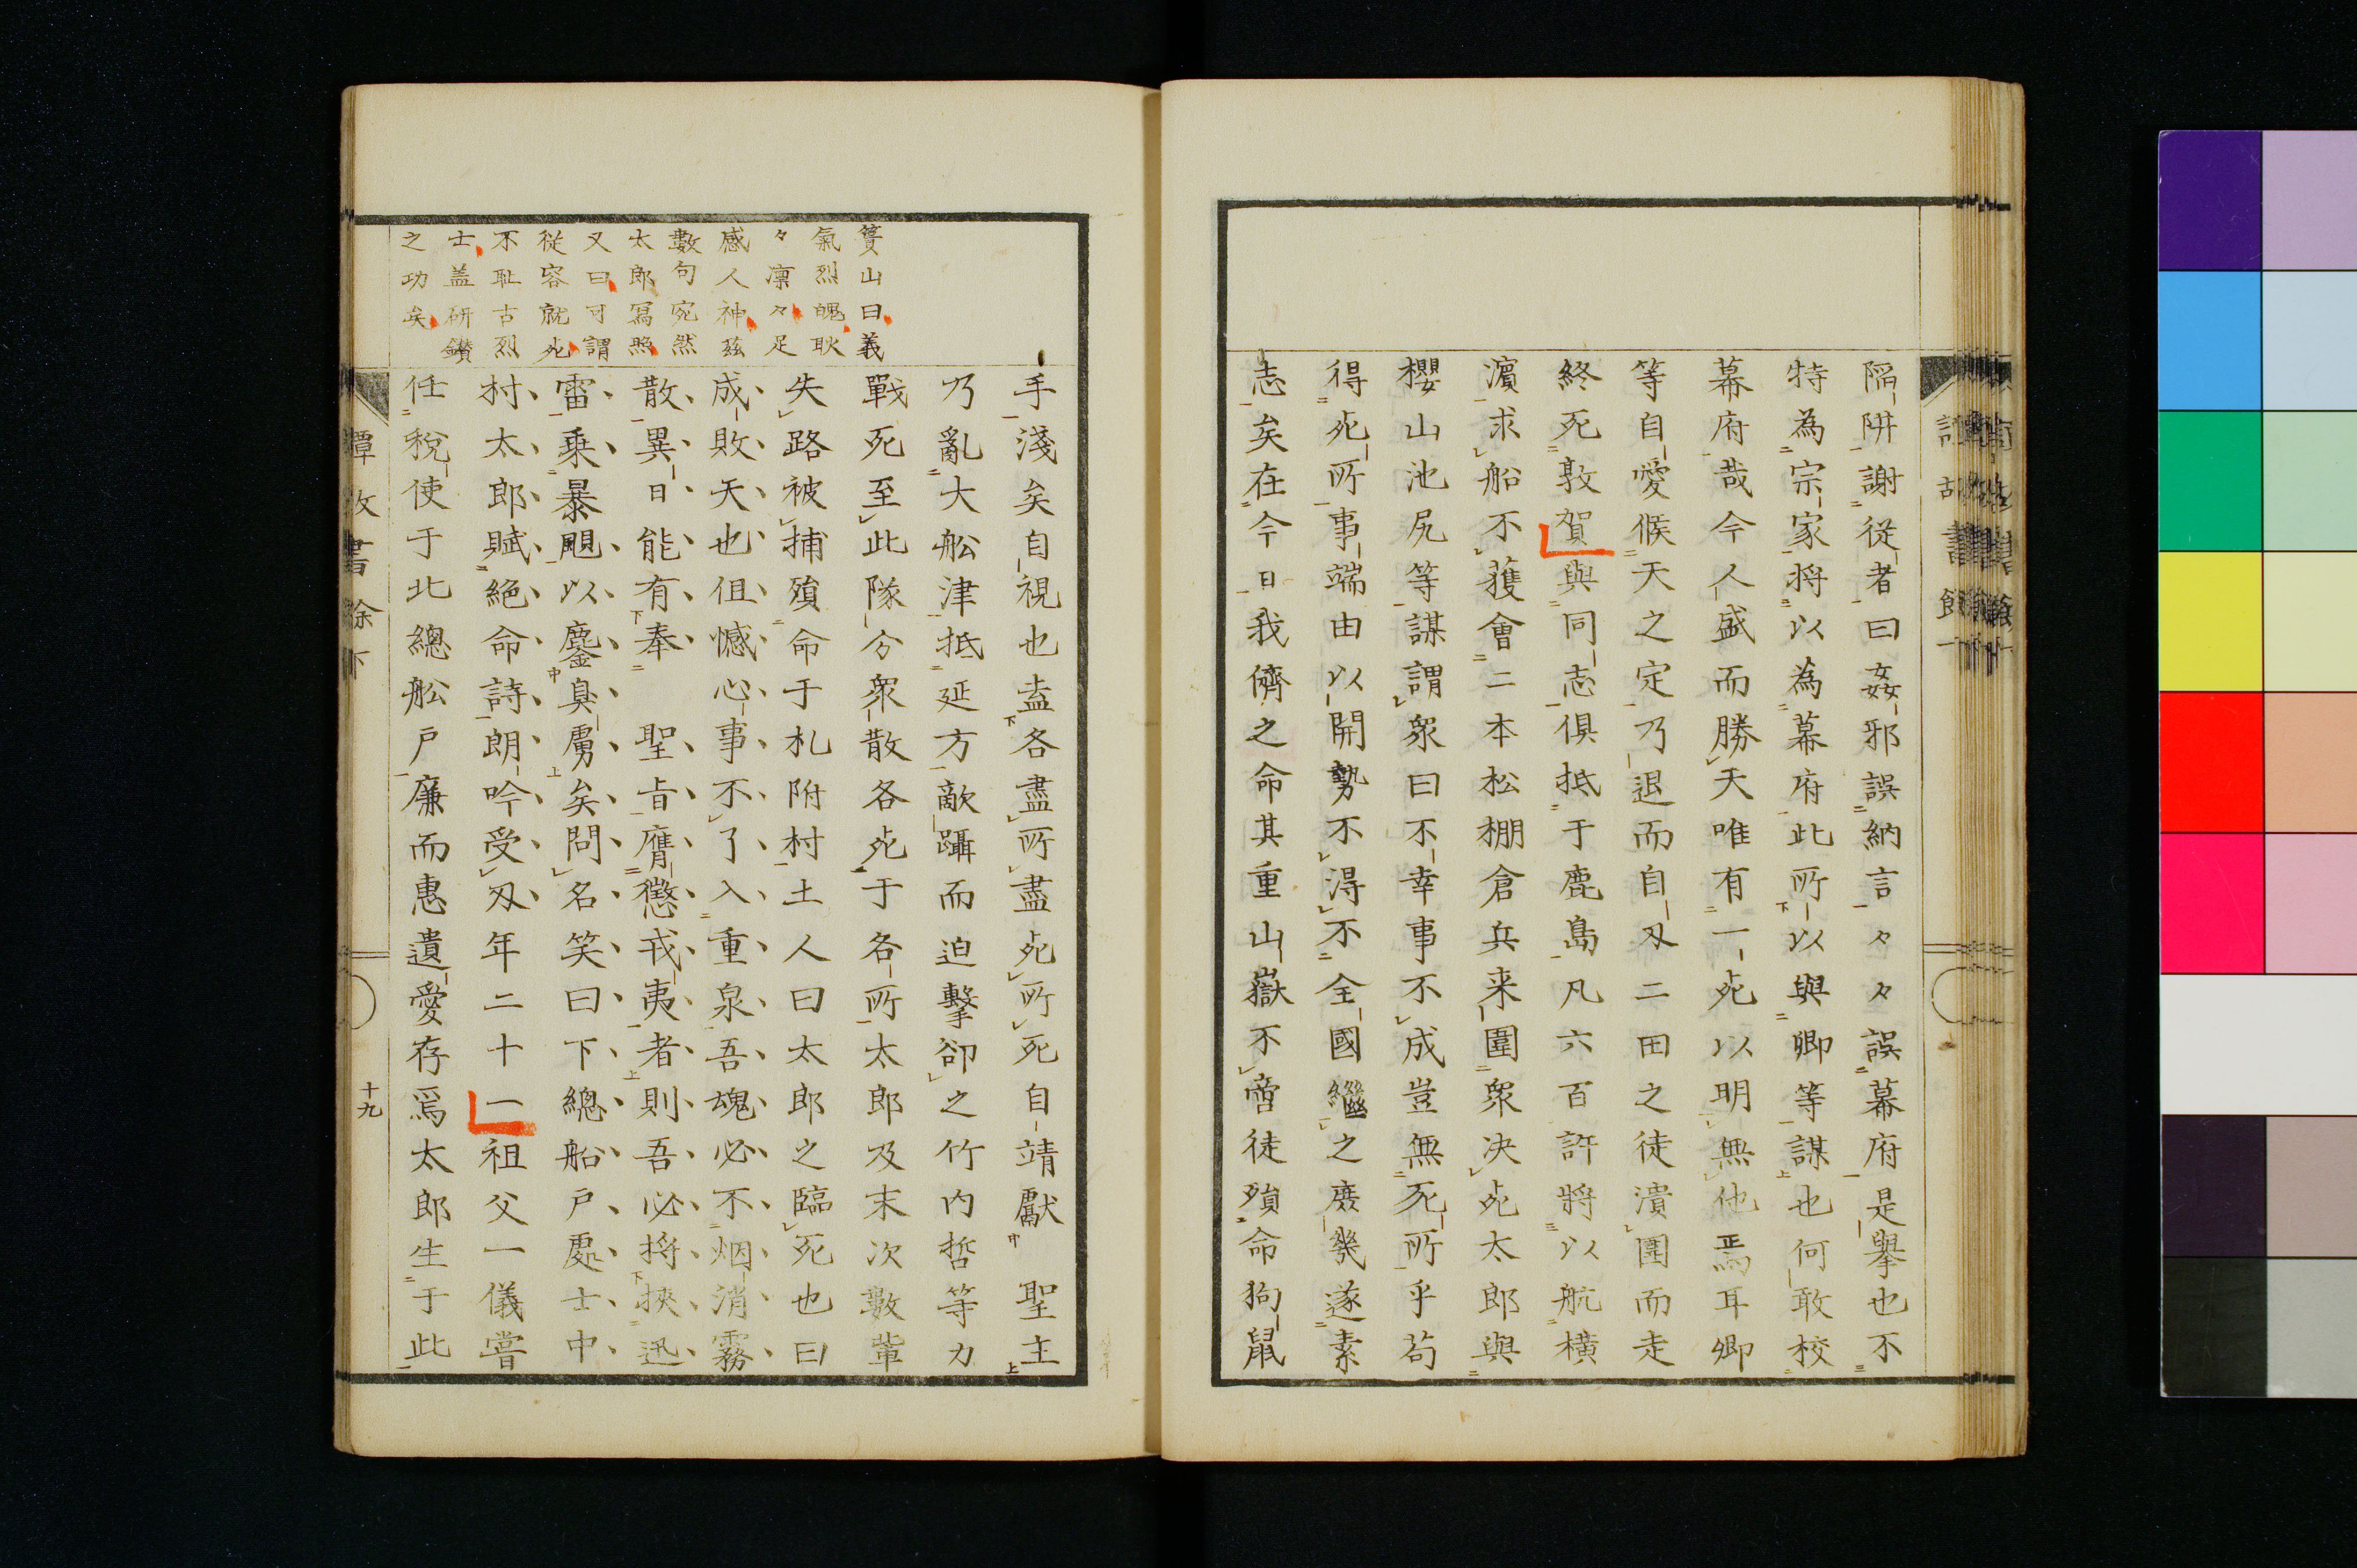 陷阱謝從者曰姦邪誤納言々々誤幕府是擧也不
特為宗家将以為幕府此所以與卿等謀也何敢校
幕府哉今人盛而勝天唯有一死以明無他焉耳卿
等自愛候天之定乃退而自刄二田之徒潰圍而走
終死敦賀與同志俱抵于鹿島凡六百許將以航橫
濵求船不獲會二本松棚倉兵来圍衆决死太郎與
櫻山池尻等謀謂衆曰不幸事不成豈無死所乎苟
得死所事端由以開勢不得不全國繼之庶幾遂素
志矣在今日我儕之命其重山嶽不啻徒殞命狗鼠
手淺矣自視也盍各盡所盡死所死自靖獻 聖主
乃亂大舩津抵延方敵躡而迫擊卻之竹内哲等力
戰死至此隊分衆散各死于各所太郎及末次數輩
失路被捕殞命于札附村土人曰太郎之臨死也曰
成敗天也但憾心事不了入重泉吾魂必不烟消霧
散異日能有奉 聖旨膺懲戎夷者則吾必将挾迅
雷乗暴颶以鏖臭虜矣問名笑曰下總船戶處士中
村太郎賦絶命詩朗吟受刄年二十一祖父一儀嘗
任稅使于北總舩戶廉而惠遺愛存焉太郎生于此
簣山曰義
氣烈魄耿
々凛々足
感人神茲
數句宛然
太郎寫照
又曰可謂
從容就死
不耻古烈
士盖研鑚
之功矣
十九